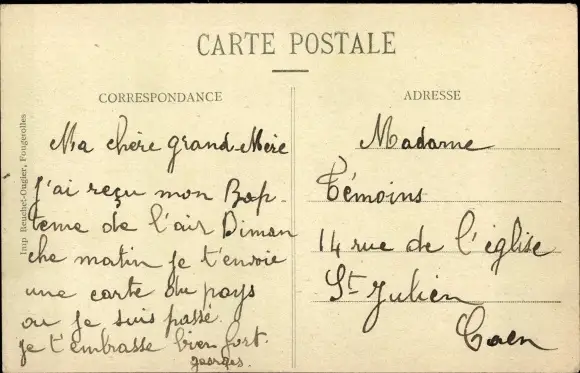 CARTE POSTALE
CORRESPONDANCE
Ma chère grand-Mère
J'ai reçu mon Bap-
teme de l'air Diman
che matin je t'envoie
une carte du pays
ou je suis passé.
je t'embrasse bien fort.
georges.
ADRESSE
Madame
Témoins
14 rue de l'église
St Julien
Caen
Imp Reuchet-Ougier, Fougerolles